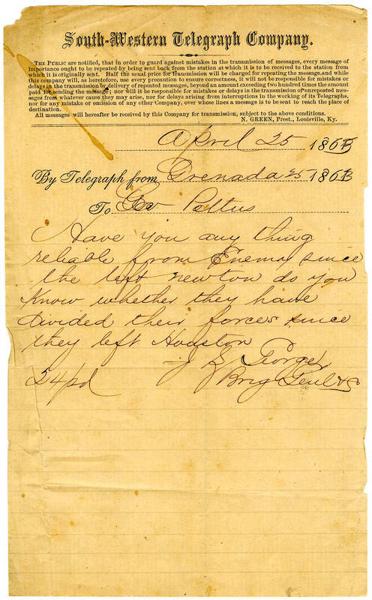 South-Western Telegraph Company.
THE PUBLIC are notified, that in order to guard against mistakes in the transmission of messages, every message of
importance ought to be repeated by being sent back from the station at which it is to be received to the station from
which it is originally sent. Half the usual price for transmission will be charged for repeating the message, and while
this company will, as heretofore, use every precaution to ensure correctness, it will not be responsible for mistakes or
delays in the transmission or delivery of repeated messages, beyond an amount exceeding two hundred times the amount
paid for sending the message; nor will it be responsible for mistakes or delays in the transmission of unrepeated messages
from whatever cause they may arise, nor for delays arising from interruptions in the working of its Telegraphs,
nor for any mistakes or omission of any other Company, over whose lines a message is to be sent to reach the place of
destination.
All messages will hereafter be received by this Company for transmission, subject to the above conditions.
N. GREEN, Prest., Louisville, Ky.
April 25 1863
By Telegraph from Grenada 25 1863
To Gov Pettus
Have you any thing
reliable from Enemy since
the left newton do you
know whether they have
divided their forces since
they left Houston
J Z George
Brig Genl
24 pd